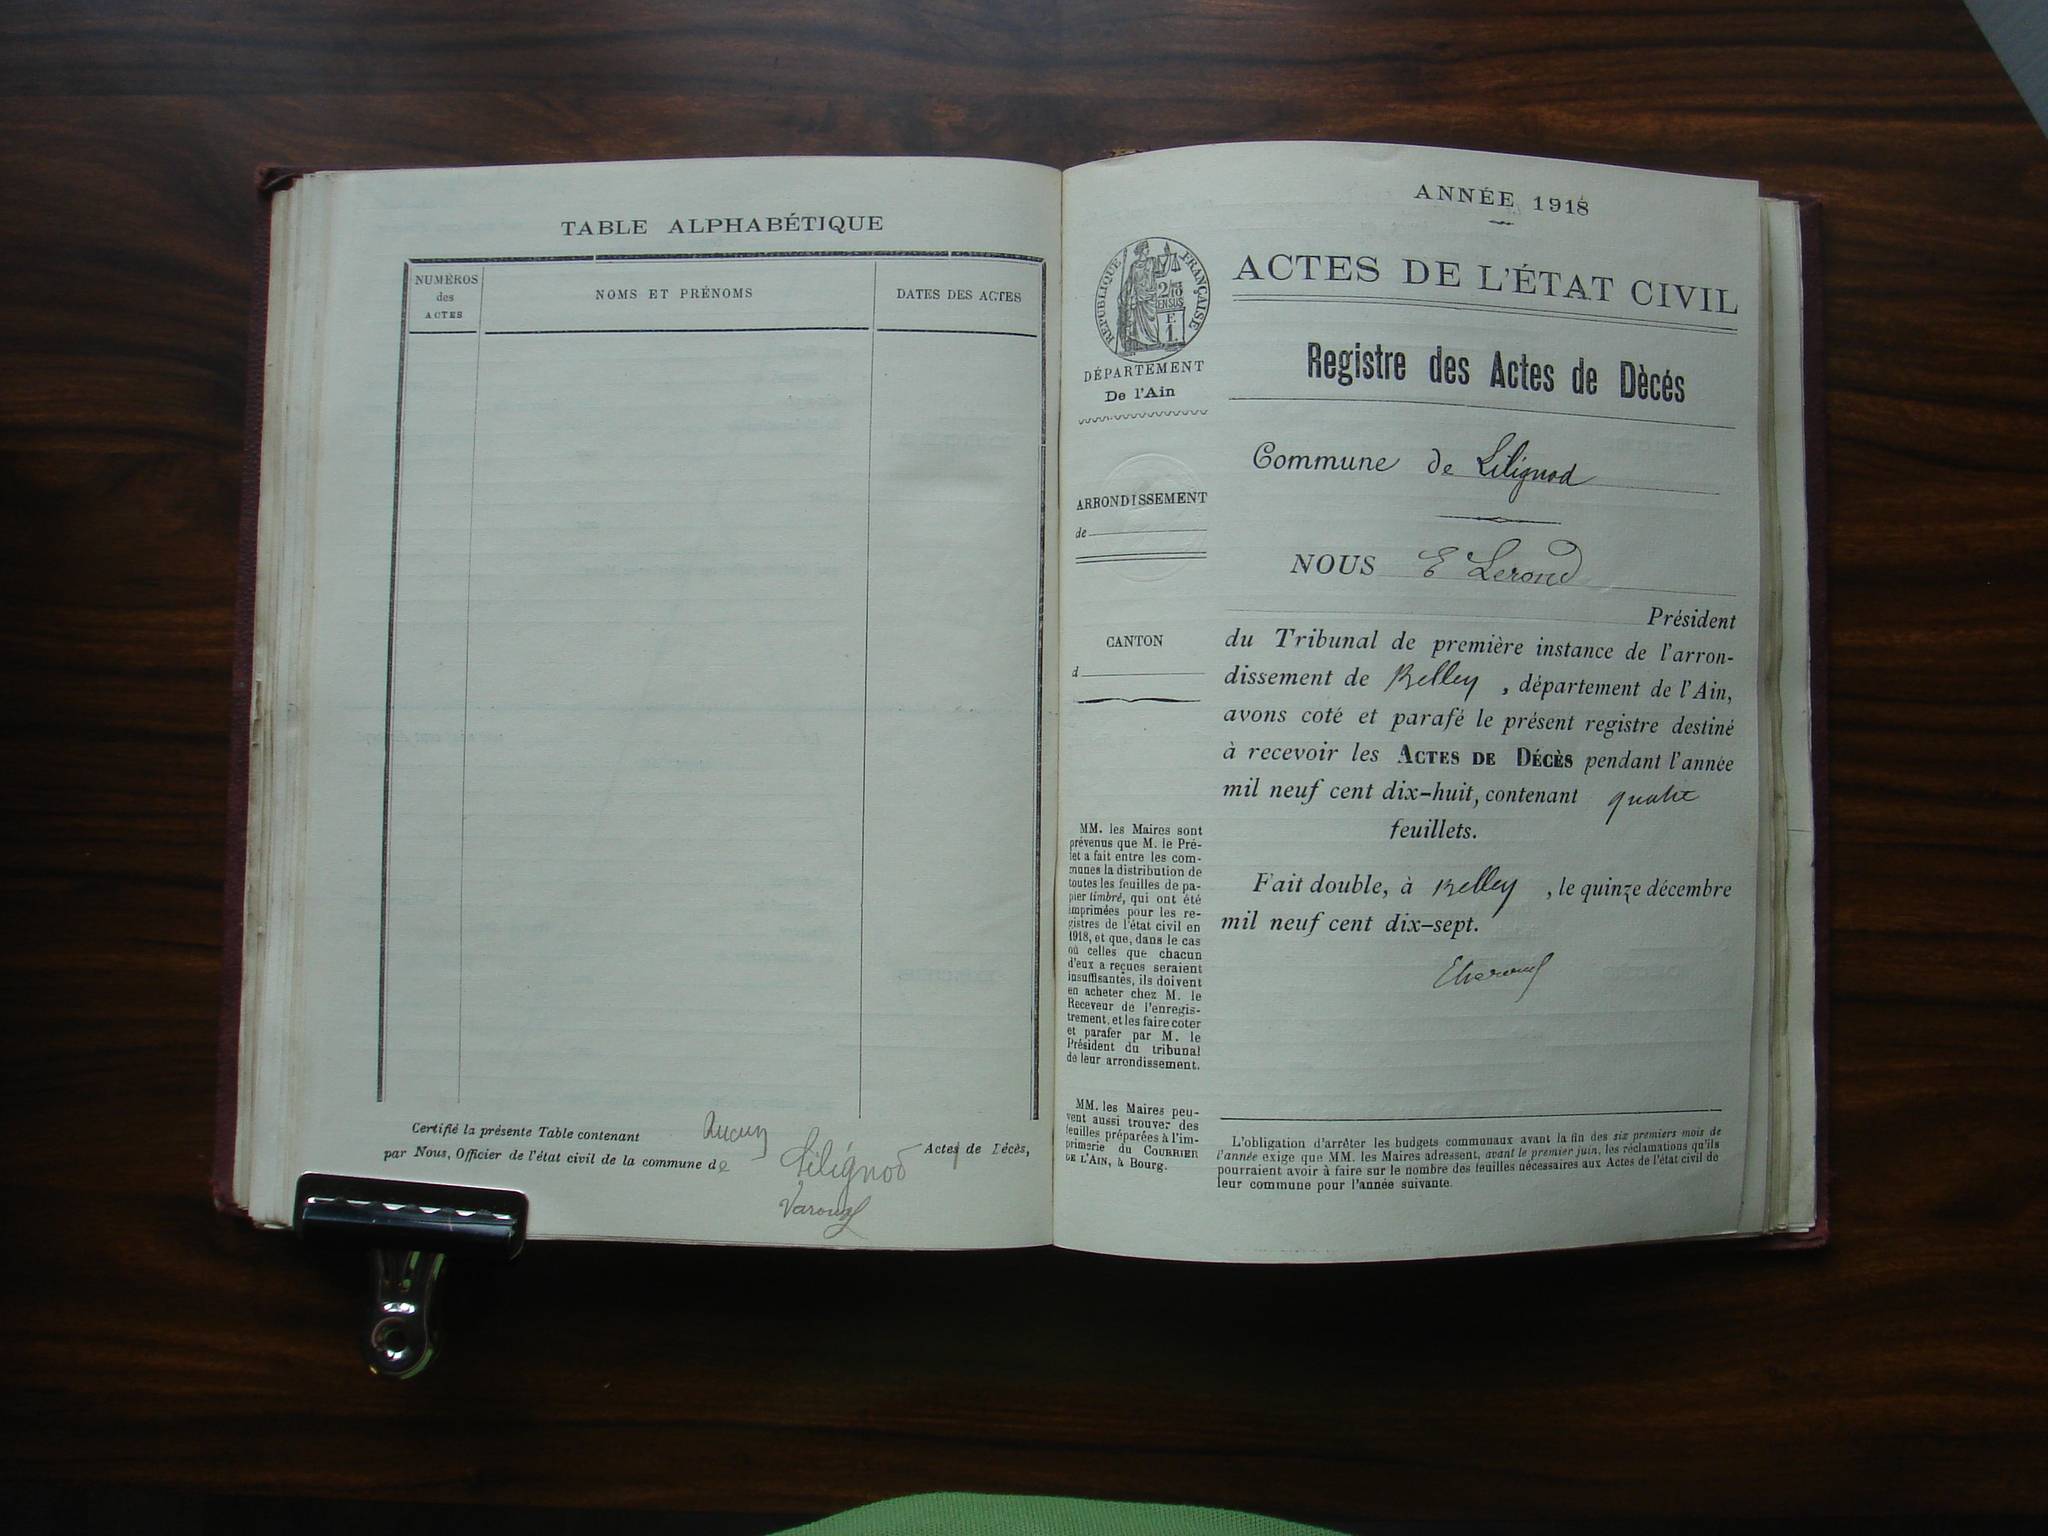 TABLE ALPHABÉTIQUE
NUMÉROS
des
ACTES
NOMS ET PRÉNOMS
DATES DES ACTES
Certifié la présente Table contenant Aucun Actes de Décès,
par Nous, Officier de l'état civil de la commune de Lilignod
ANNÉE 1918
RÉPUBLIQUE FRANÇAISE
DÉPARTEMENT
De l'Ain
ARRONDISSEMENT
de
CANTON
d
MM. les Maires sont
prévenus que M. le Pré-
fet a fait entre les com-
munes la distribution de
toutes les feuilles de pa-
pier timbré, qui ont été
imprimées pour les re-
gistres de l'état civil en
1918, et que, dans le cas
où celles que chacun
d'eux a reçues seraient
insuffisantes, ils doivent
en acheter chez M. le
Receveur de l'enregis-
trement, et les faire coter
et parafer par M. le
Président du tribunal
de leur arrondissement.
MM. les Maires peu-
vent aussi trouver des
feuilles préparées à l'im-
primerie du COURRIER
DE L'AIN, à Bourg.
ACTES DE L'ÉTAT CIVIL
Registre des Actes de Dècés
Commune de Lilignod
NOUS E Lerond
Président
du Tribunal de première instance de l'arron-
dissement de Belley, département de l'Ain,
avons coté et parafé le présent registre destiné
à recevoir les ACTES DE DÉCÈS pendant l'année
mil neuf cent dix-huit, contenant quatre
feuillets.
Fait double, à Belley, le quinze décembre
mil neuf cent dix-sept.
L'obligation d'arrêter les budgets communaux avant la fin des six premiers mois de
l'année exige que MM. les Maires adressent, avant le premier juin, les réclamations qu'ils
pourraient avoir à faire sur le nombre des feuilles nécessaires aux Actes de l'état civil de
leur commune pour l'année suivante.